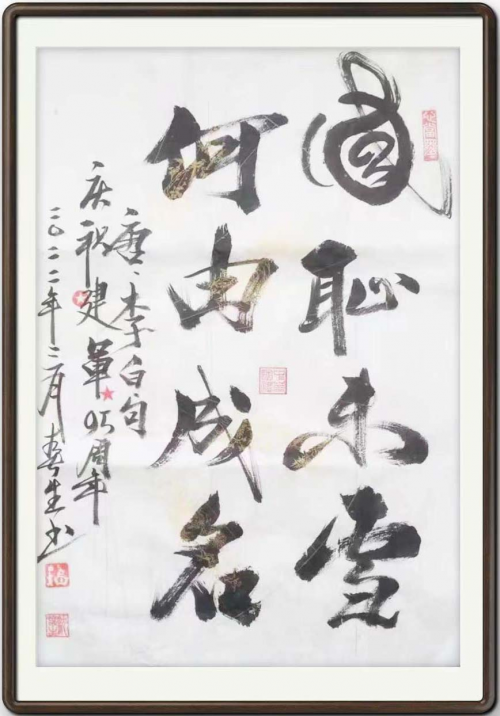 國耻未雪
何由成名
唐·李白句
庆祝建軍95周年
二〇二二年 月 生书